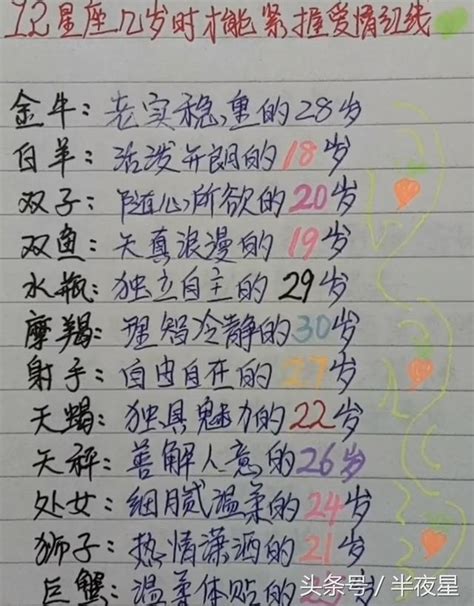 12星座几岁时才能紧握爱情红线
金牛：老实稳重的28岁
白羊：活泼开朗的18岁
双子：随心所欲的20岁
双鱼：天真浪漫的19岁
水瓶：独立自主的29岁
摩羯：理智冷静的30岁
射手：自由自在的27岁
天蝎：独具魅力的22岁
天秤：善解人意的26岁
处女：细腻温柔的24岁
狮子：热情潇洒的21岁
巨蟹：温柔体贴的岁
头条号 / 半夜星